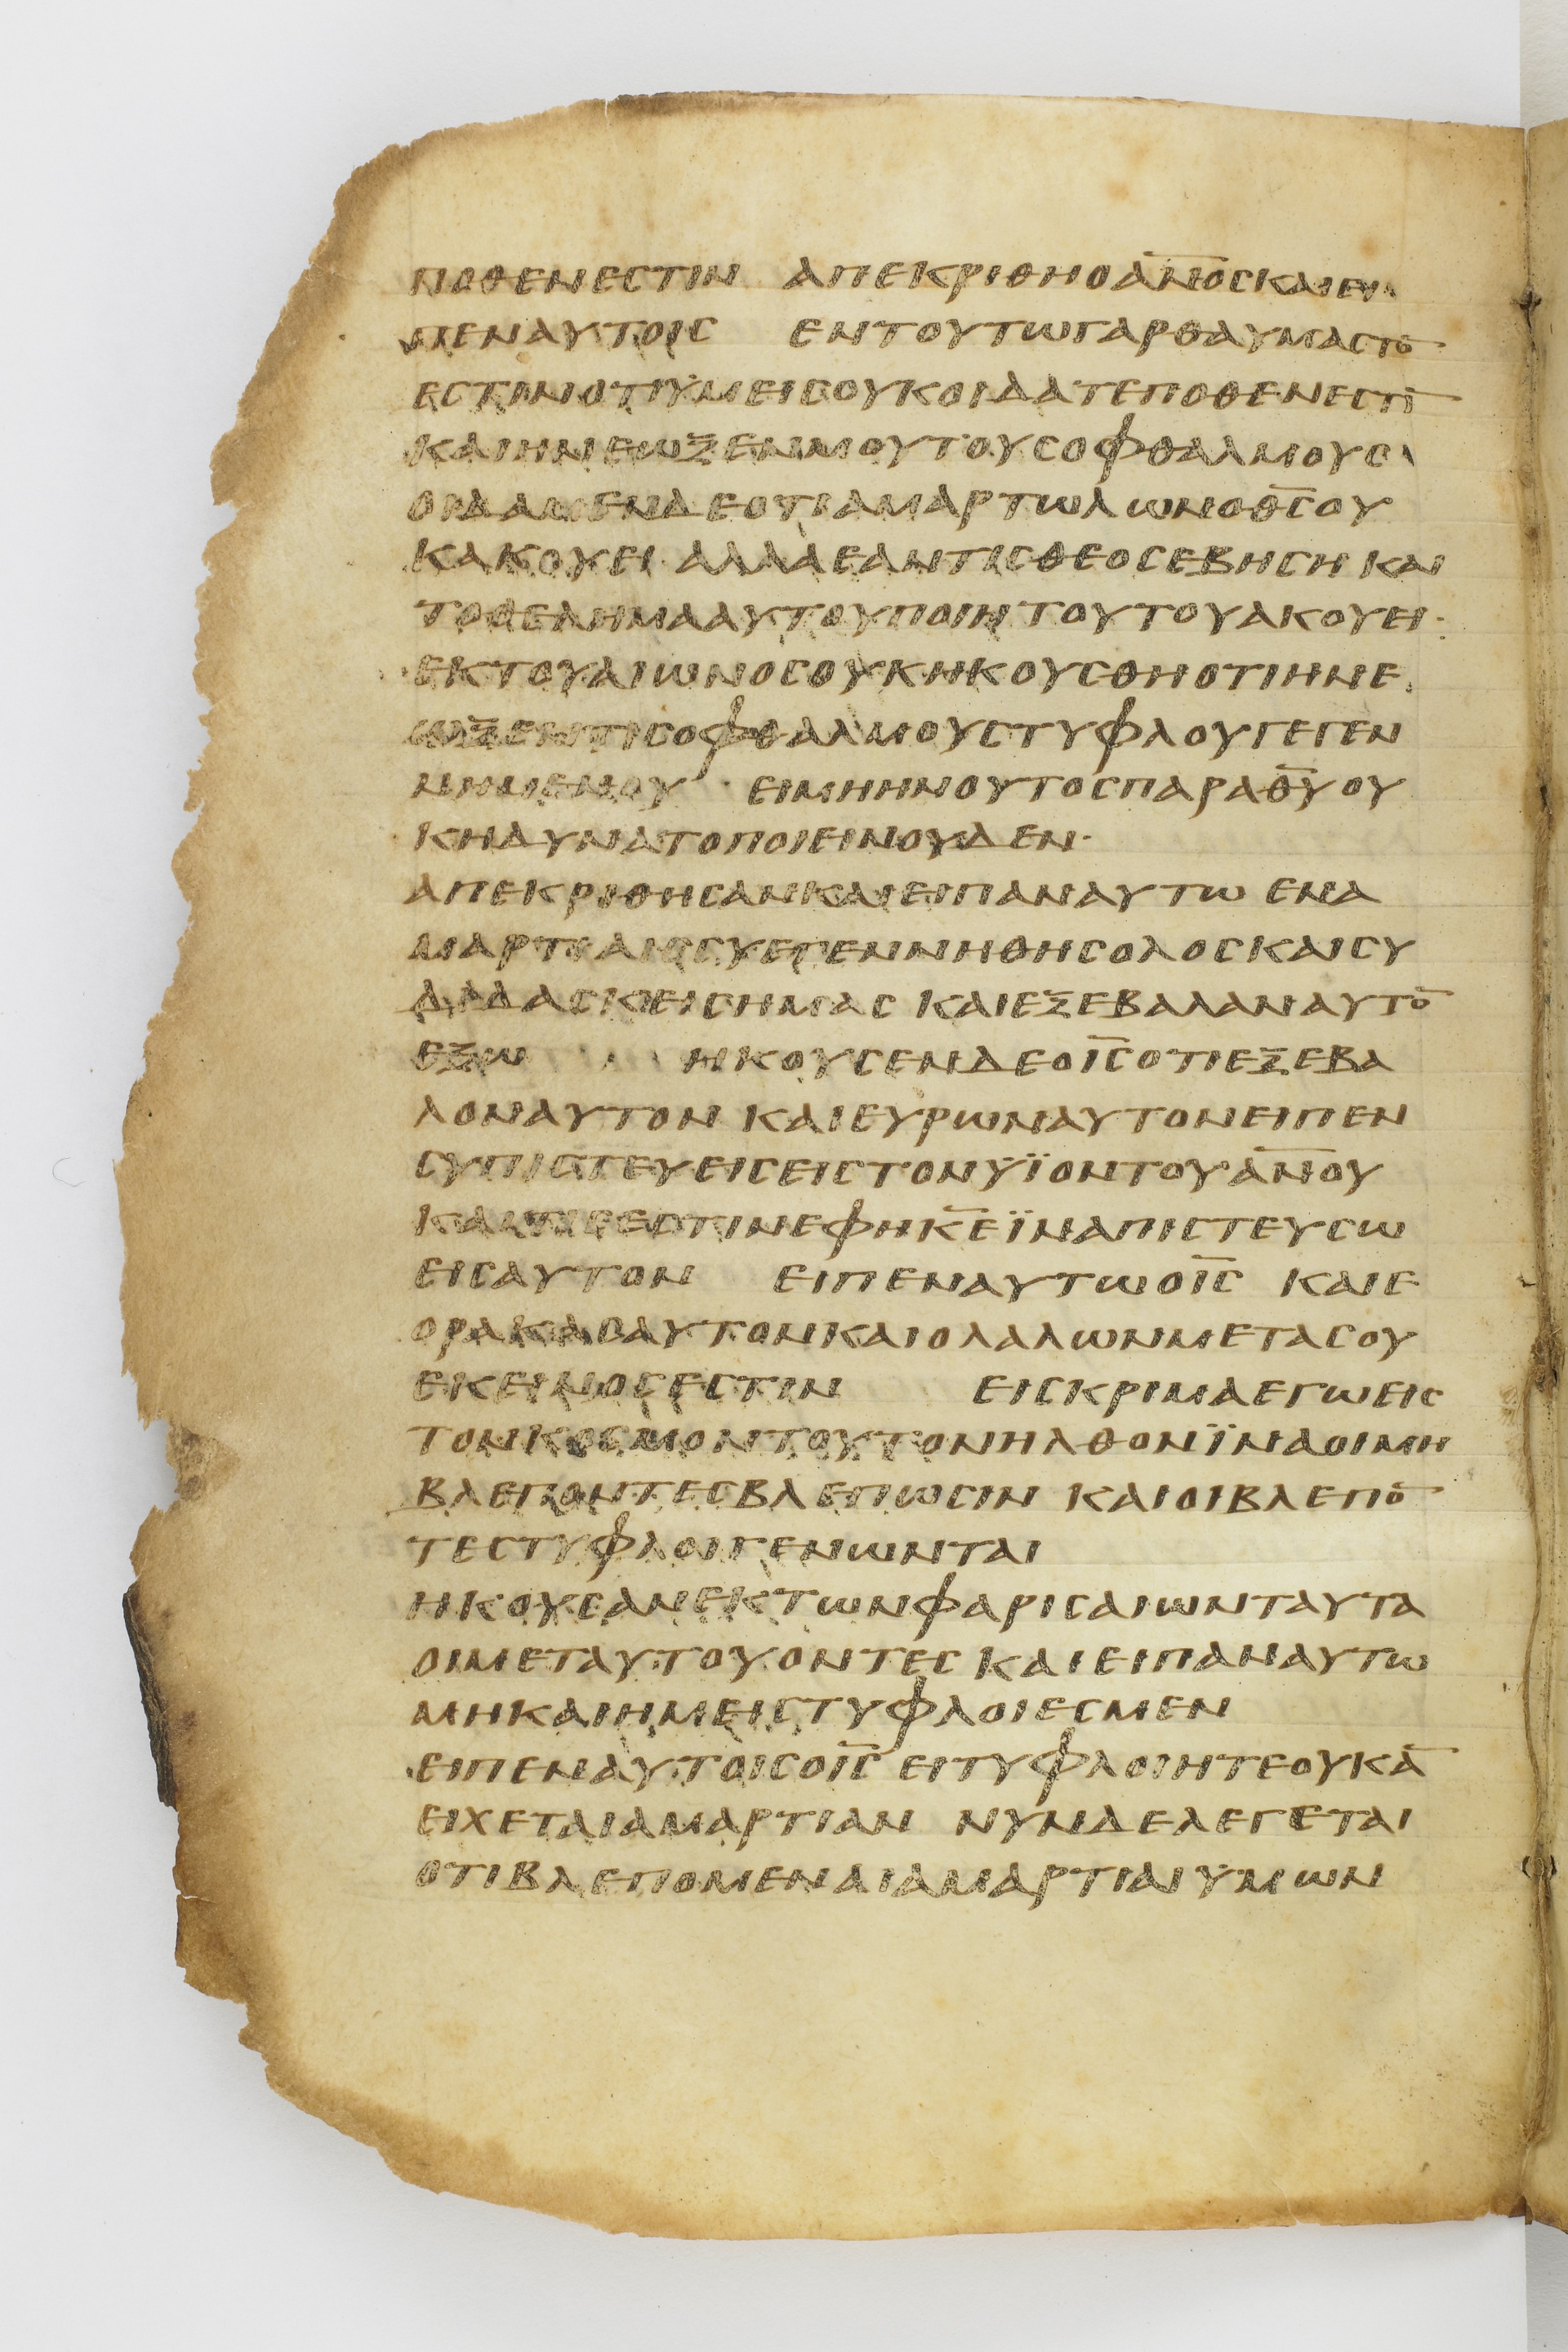 ΠΟΘΕΝΕϹΤΙΝ ΑΠΕΚΡΙΘΗΟΑ̅Ν̅Ο̅ϹΚΑΙΕΙ
ΠΕΝΑΥΤΟΙϹ ΕΝΤΟΥΤΩΓΑΡΘΑΥΜΑϹΤΟ̅
ΕϹΤΙΝΟΤΙΫΜΕΙϹΟΥΚΟΙΔΑΤΕΠΟΘΕΝΕϹΤΙ̅
ΚΑΙΗΝΕΩΞΕΝΜΟΥΤΟΥϹΟΦΘΑΛΜΟΥϹ
ΟΙΔΑΜΕΝΔΕΟΤΙΑΜΑΡΤΩΛΩΝΟΘ̅Ϲ̅ΟΥ
ΚΑΚΟΥΕΙ ΑΛΛΑΕΑΝΤΙϹΘΕΟϹΕΒΗϹΗΚΑΙ
ΤΟΘΕΛΗΜΑΑΥΤΟΥΠΟΙΗΤΟΥΤΟΥΑΚΟΥΕΙ·
ΕΚΤΟΥΑΙΩΝΟϹΟΥΚΗΚΟΥϹΘΗΟΤΙΗΝΕ
ΩΞΕΝΤΙϹΟΦΘΑΛΜΟΥϹΤΥΦΛΟΥΓΕΓΕΝ
ΝΗΜΕΝΟΥ · ΕΙΜΗΗΝΟΥΤΟϹΠΑΡΑΘ̅Υ̅ΟΥ
ΚΗΔΥΝΑΤΟΠΟΙΕΙΝΟΥΔΕΝ·
ΑΠΕΚΡΙΘΗϹΑΝΚΑΙΕΙΠΑΝΑΥΤΩ ΕΝΑ
ΜΑΡΤΙΑΙϹϹΥΕΓΕΝΝΗΘΗϹΟΛΟϹΚΑΙϹΥ
ΔΙΔΑϹΚΕΙϹΗΜΑϹ ΚΑΙΕΞΕΒΑΛΑΝΑΥΤΟ̅
ΕΞΩ ΗΚΟΥϹΕΝΔΕΟΙ̅Ϲ̅ΟΤΙΕΞΕΒΑ
ΛΟΝΑΥΤΟΝ ΚΑΙΕΥΡΩΝΑΥΤΟΝΕΙΠΕΝ
ϹΥΠΙϹΤΕΥΕΙϹΕΙϹΤΟΝΫΪΟΝΤΟΥΑ̅Ν̅Ο̅Υ
ΚΑΙΤΙϹΕϹΤΙΝΕΦΗΚ̅Ε̅ΪΝΑΠΙϹΤΕΥϹΩ
ΕΙϹΑΥΤΟΝ ΕΙΠΕΝΑΥΤΩΟΙ̅Ϲ̅ ΚΑΙΕ
ΟΡΑΚΑϹΑΥΤΟΝΚΑΙΟΛΑΛΩΝΜΕΤΑϹΟΥ
ΕΚΕΙΝΟϹΕϹΤΙΝ ΕΙϹΚΡΙΜΑΕΓΩΕΙϹ
ΤΟΝΚΟϹΜΟΝΤΟΥΤΟΝΗΛΘΟΝΪΝΑΟΙΜΗ
ΒΛΕΠΟΝΤΕϹΒΛΕΠΩϹΙΝ ΚΑΙΟΙΒΛΕΠΟ̅
ΤΕϹΤΥΦΛΟΙΓΕΝΩΝΤΑΙ
ΗΚΟΥϹΑΝΕΚΤΩΝΦΑΡΙϹΑΙΩΝΤΑΥΤΑ
ΟΙΜΕΤΑΥΤΟΥΟΝΤΕϹ ΚΑΙΕΙΠΑΝΑΥΤΩ
ΜΗΚΑΙΗΜΕΙϹΤΥΦΛΟΙΕϹΜΕΝ
ΕΙΠΕΝΑΥΤΟΙϹΟΙ̅Ϲ̅ ΕΙΤΥΦΛΟΙΗΤΕΟΥΚΑ̅
ΕΙΧΕΤΑΙΑΜΑΡΤΙΑΝ ΝΥΝΔΕΛΕΓΕΤΑΙ
ΟΤΙΒΛΕΠΟΜΕΝΑΙΑΜΑΡΤΙΑΙΫΜΩΝ